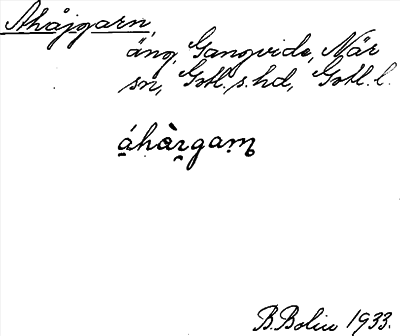 Ahåjgarn,
äng, Gangvide, När
sn, Gotl. s. hd, Gotl. l.
a̱hàrgaɱ
B. Bolin 1933.